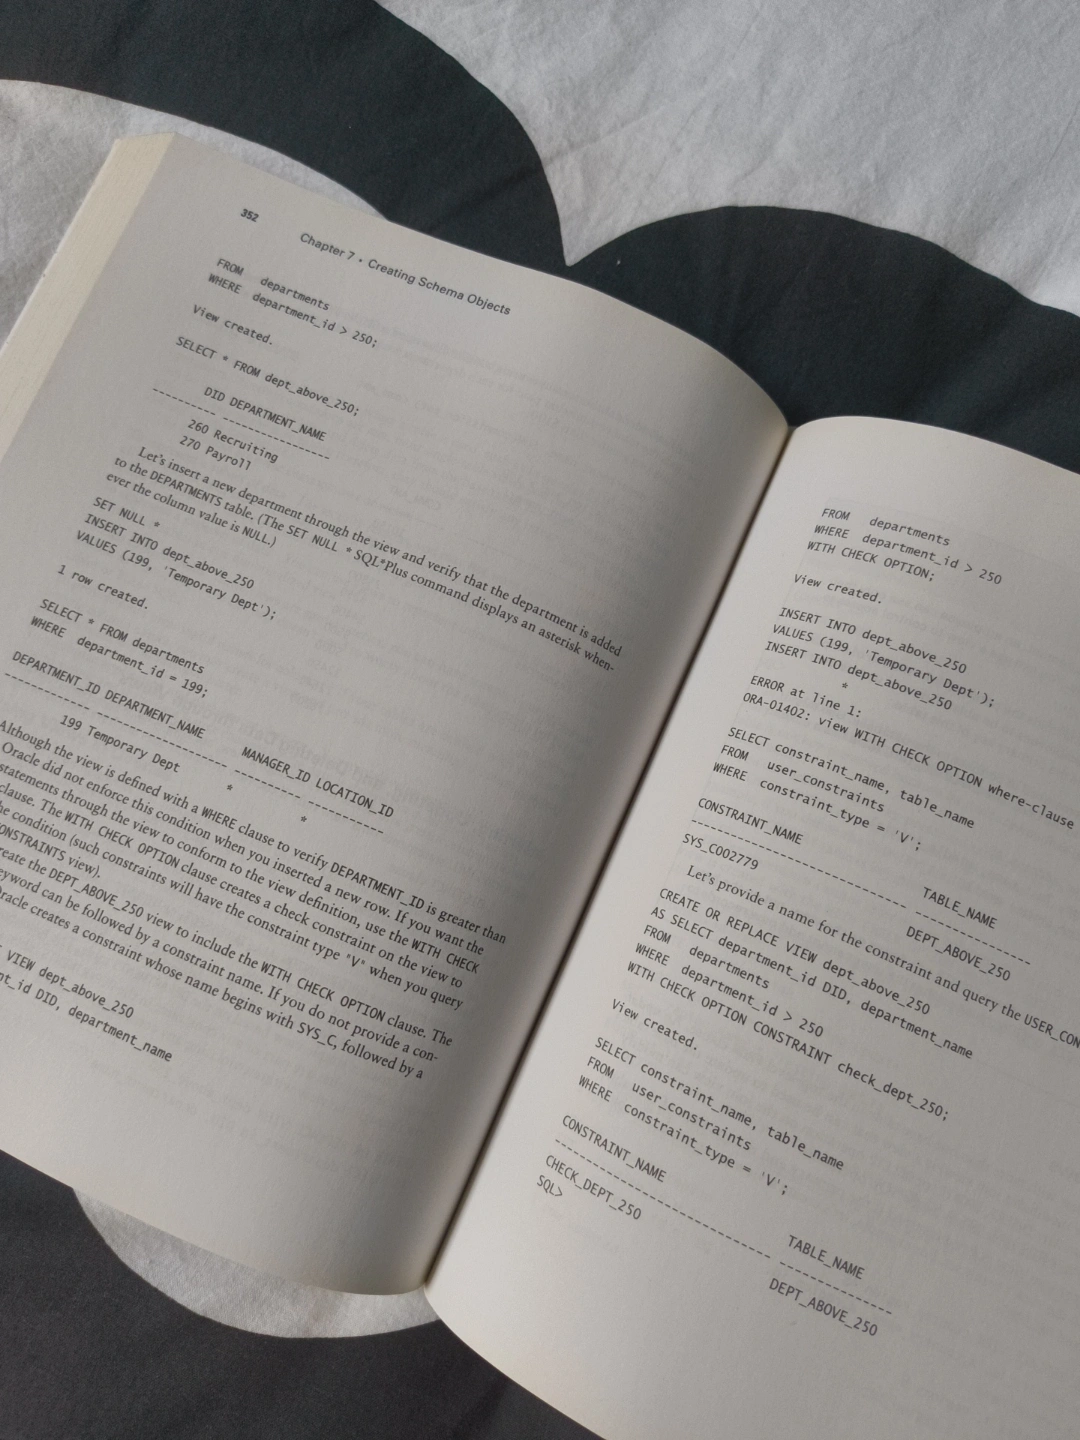 352
Chapter 7 • Creating Schema Objects
FROM departments
WHERE department_id > 250;
View created.
SELECT * FROM dept_above_250;
DID DEPARTMENT_NAME
---------- --------------------
260 Recruiting
270 Payroll
Let's insert a new department through the view and verify that the department is added
to the DEPARTMENTS table. (The SET NULL * SQL*Plus command displays an asterisk when-
ever the column value is NULL.)
SET NULL *
INSERT INTO dept_above_250
VALUES (199, 'Temporary Dept');
1 row created.
SELECT * FROM departments
WHERE department_id = 199;
DEPARTMENT_ID DEPARTMENT_NAME MANAGER_ID LOCATION_ID
------------- -------------------- ---------- -----------
199 Temporary Dept * *
Although the view is defined with a WHERE clause to verify DEPARTMENT_ID is greater than
Oracle did not enforce this condition when you inserted a new row. If you want the
statements through the view to conform to the view definition, use the WITH CHECK
clause. The WITH CHECK OPTION clause creates a check constraint on the view to
the condition (such constraints will have the constraint type "V" when you query
CONSTRAINTS view).
create the DEPT_ABOVE_250 view to include the WITH CHECK OPTION clause. The
keyword can be followed by a constraint name. If you do not provide a con-
Oracle creates a constraint whose name begins with SYS_C, followed by a
VIEW dept_above_250
nt_id DID, department_name
FROM departments
WHERE department_id > 250
WITH CHECK OPTION;
View created.
INSERT INTO dept_above_250
VALUES (199, 'Temporary Dept');
INSERT INTO dept_above_250
*
ERROR at line 1:
ORA-01402: view WITH CHECK OPTION where-clause
SELECT constraint_name, table_name
FROM user_constraints
WHERE constraint_type = 'V';
CONSTRAINT_NAME TABLE_NAME
------------------------------ ---------------
SYS_C002779 DEPT_ABOVE_250
Let's provide a name for the constraint and query the USER_CON
CREATE OR REPLACE VIEW dept_above_250
AS SELECT department_id DID, department_name
FROM departments
WHERE department_id > 250
WITH CHECK OPTION CONSTRAINT check_dept_250;
View created.
SELECT constraint_name, table_name
FROM user_constraints
WHERE constraint_type = 'V';
CONSTRAINT_NAME TABLE_NAME
------------------------------ ---------------
CHECK_DEPT_250 DEPT_ABOVE_250
SQL>